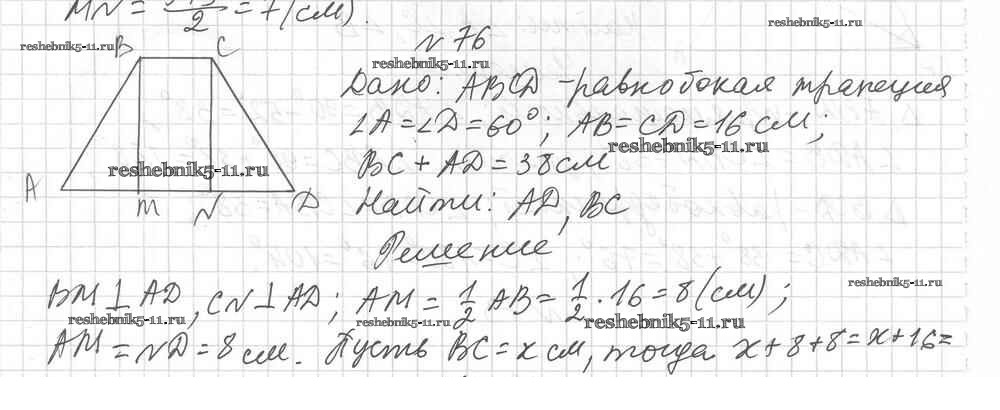 MN = /2 = 7 (см).
reshebnik5-11.ru
reshebnik5-11.ru
B C
N 76
reshebnik5-11.ru
Дано: ABCD – равнобокая трапеция
∠A = ∠D = 60°; AB = CD = 16 см;
reshebnik5-11.ru
BC + AD = 38 см
reshebnik5-11.ru
A M N D
Найти: AD, BC
Решение
BM ⊥ AD, CN ⊥ AD; AM = 1/2 AB = 1/2 · 16 = 8 (см);
reshebnik5-11.ru
reshebnik5-11.ru
reshebnik5-11.ru
reshebnik5-11.ru
AM = ND = 8 см. Пусть BC = x см, тогда x + 8 + 8 = x + 16 =